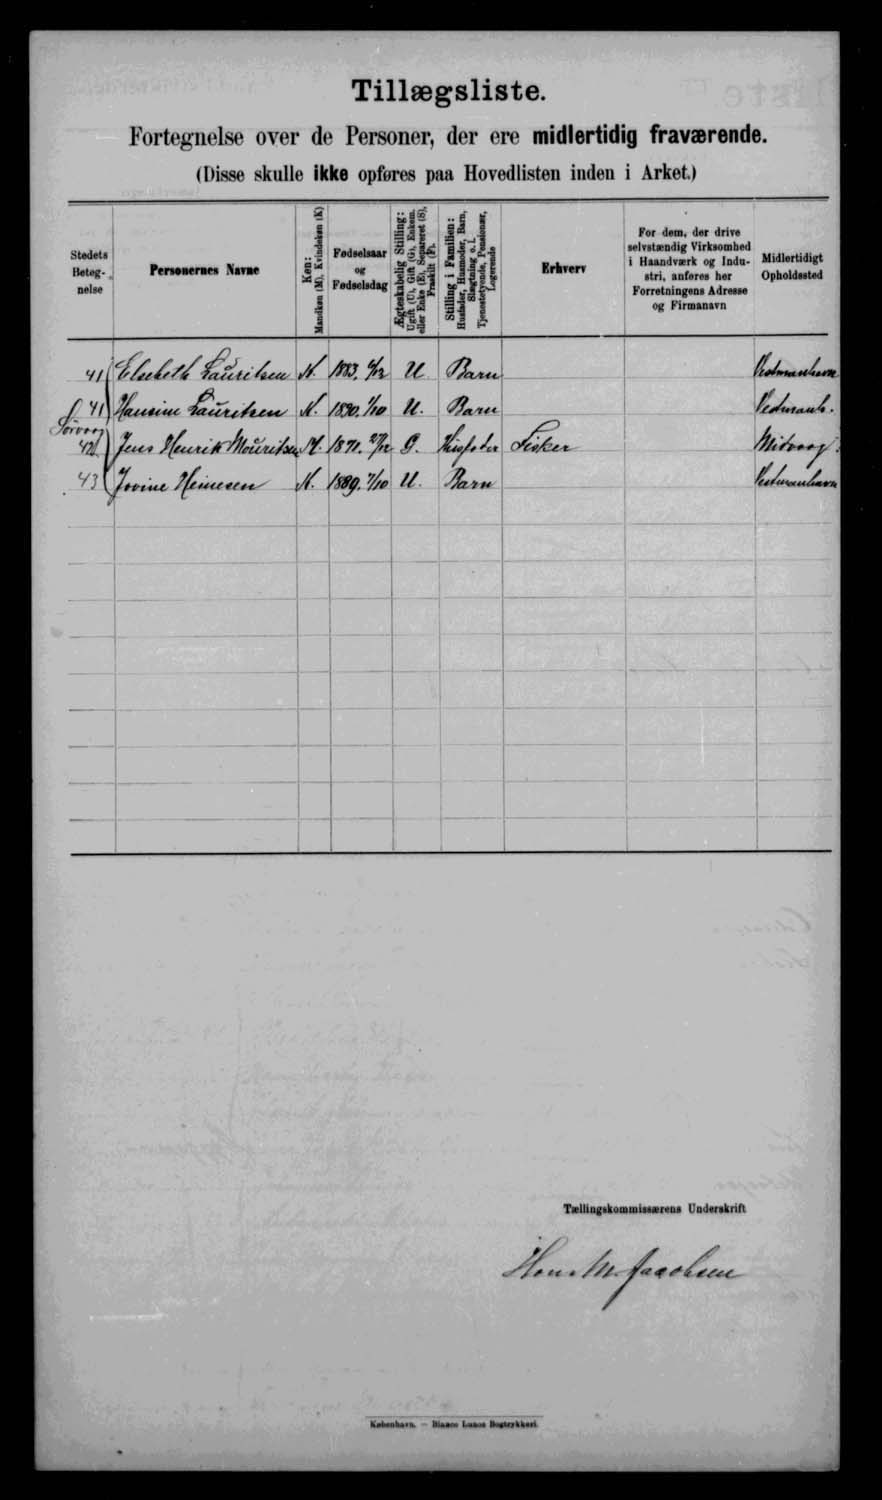 Tillægsliste.
Fortegnelse over de Personer, der ere midlertidig fraværende.
(Disse skulle ikke opføres paa Hovedlisten inden i Arket.)
Stedets Beteg- nelse
Personernes Navne
Køn: Mandkøn (M), Kvindekøn (K)
Fødselsaar og Fødselsdag
Ægteskabelig Stilling: Ugift (U), Gift (G), Enkem. eller Enke (E), Separeret (S), Fraskilt (F).
Stilling i Familien: Husfader, Husmoder, Barn, Slægtning o. l. Tjenestetyende, Pensionær, Logerende
Erhverv
For dem, der drive selvstændig Virksomhed i Haandværk og Indu- stri, anføres her Forretningens Adresse og Firmanavn
Midlertidigt Opholdssted
41 Elsebeth Lauritsen K. 1883. U Barn Vestmanhavn
41 Hansine Lauritsen K. 1890. 1/10 U. Barn Vestmanh.
Sørvaag
42 Jens Henrik Mouritsen M. 1871. 27/12 G. Husfader Fisker Midvaag
43 Jovine Heinesen K. 1889. 7/10 U. Barn Vestmanhavn
Tællingskommissærens Underskrift
Hans M. Jacobsen
København. — Bianco Lunos Bogtrykkeri.